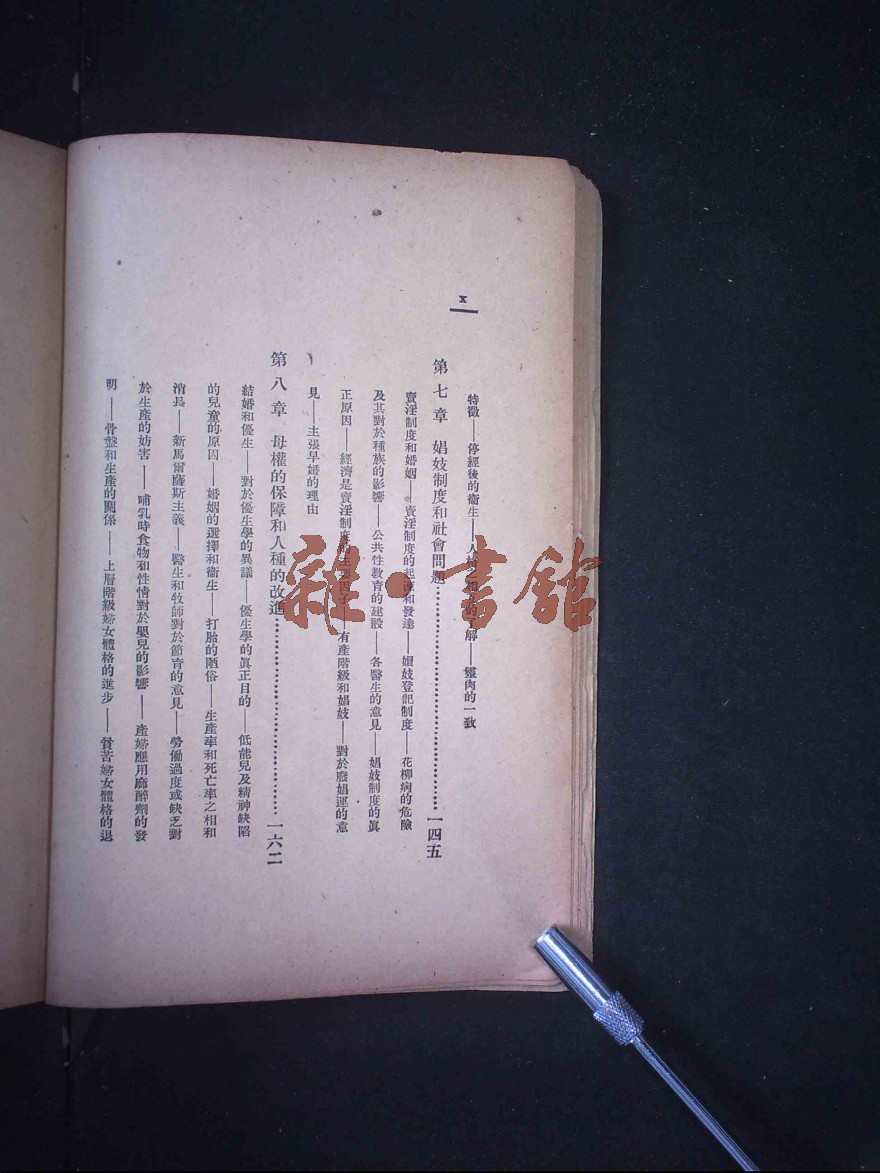 x
特徵——停經後的衞生——人類之相互的了解——靈肉的一致
第七章 娼妓制度和社會問題……一四五
賣淫制度和婚姻——賣淫制度的起源和發達——娼妓登記制度——花柳病的危險
及其對於種族的影響——公共性教育的建設——各醫生的意見——娼妓制度的眞
正原因——經濟是賣淫制度的主要因子——有產階級和娼妓——對於廢娼運的意
見——主張早婚的理由
第八章 母權的保障和人種的改進……一六二
結婚和優生——對於優生學的異議——優生學的眞正目的——低能兒及精神缺陷
的兒童的原因——婚姻的選擇和衞生——打胎的陋俗——生產率和死亡率之相和
消長——新馬爾薩斯主義——醫生和牧師對於節育的意見——勞働過度或缺乏對
於生產的妨害——哺乳時食物和性情對於嬰兒的影響——產婦應用麻醉劑的發
明——骨盤和生產的關係——上層階級婦女體格的進步——貧苦婦女體格的退
雜·書館